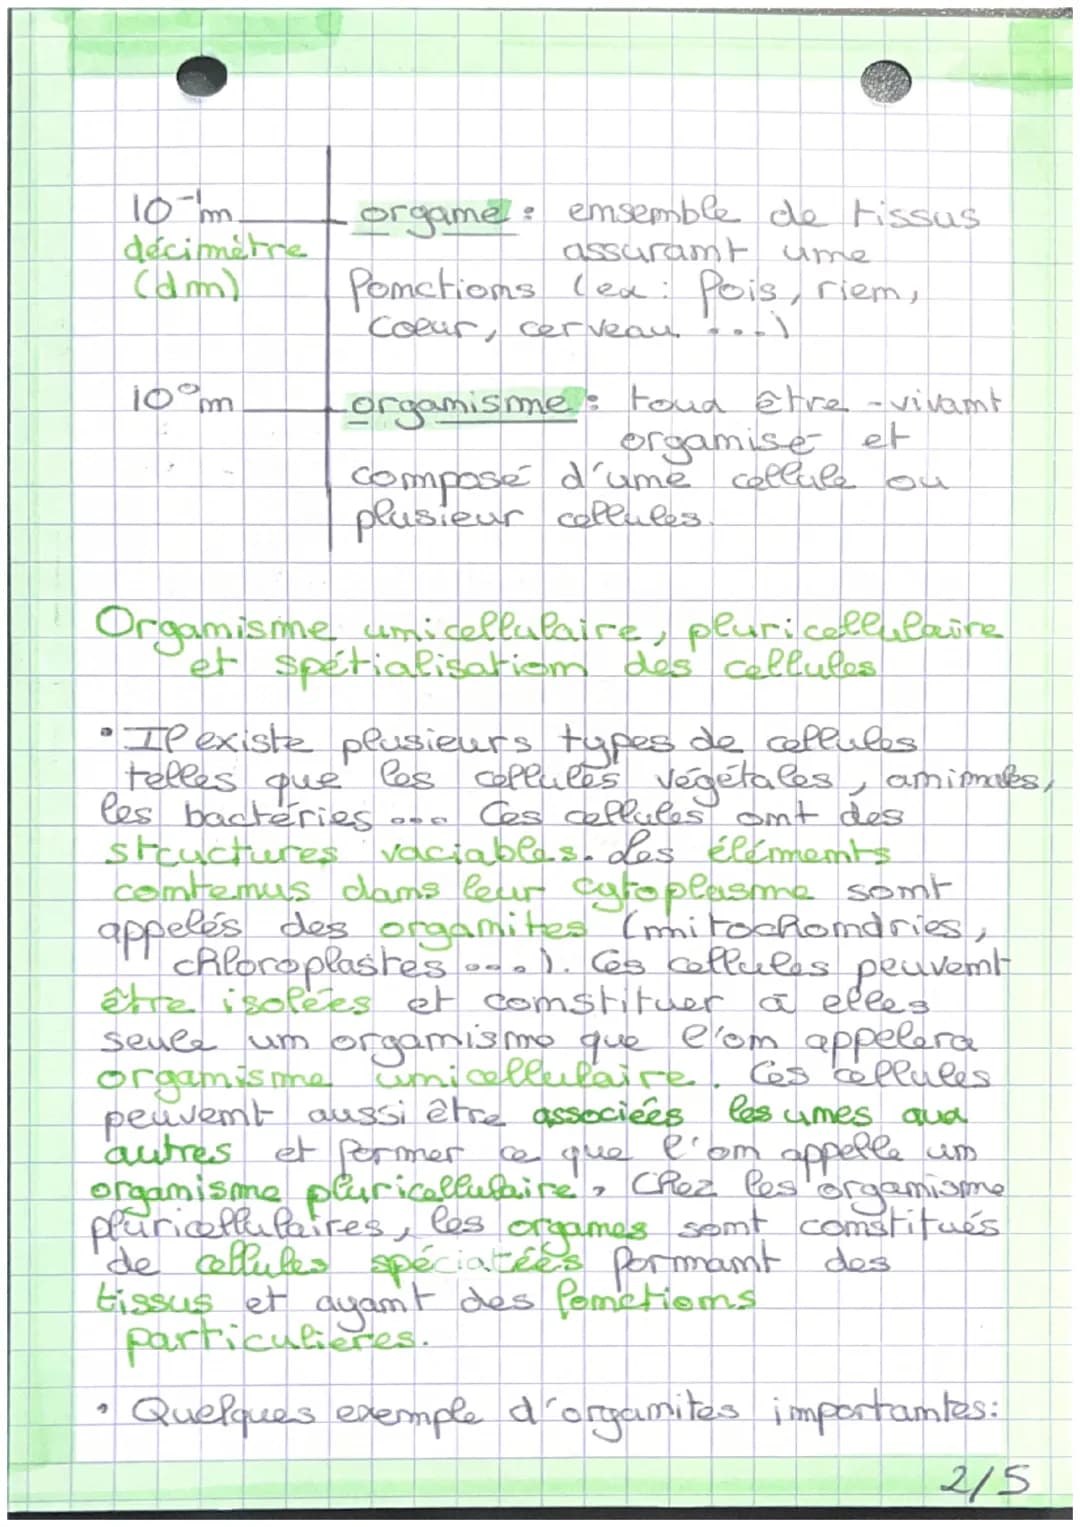 10⁻¹m organe : ensemble de tissus
décimètre assurant une
(dm) fonctions (ex : fois, rien,
coeur, cerveau ...)
10⁰m organisme : toux être-vivant
organisé et
composé d'une cellule ou
plusieur cellules.
Organisme unicellulaire, pluricellulaire
et spétialisation des cellules
• Il existe plusieurs types de cellules
telles que les cellules végétales, animales,
les bactéries ... Ces cellules ont des
structures variables. Les éléments
contenus dans leur cytoplasme sont
appelés des organites (mitochondries,
chloroplastes ...). Ces cellules peuvent
être isolées et constituer à elles
seule un organisme que l'on appelera
organisme unicellulaire. Ces cellules
peuvent aussi être associées les unes aux
autres et former ce que l'on appelle un
organisme pluricellulaire, Chez les organisme
pluricellulaires, les organes sont constitués
de cellules spéciatées formant des
tissus et ayant des fonctions
particulieres.
• Quelques exemple d'organites importantes:
2/5